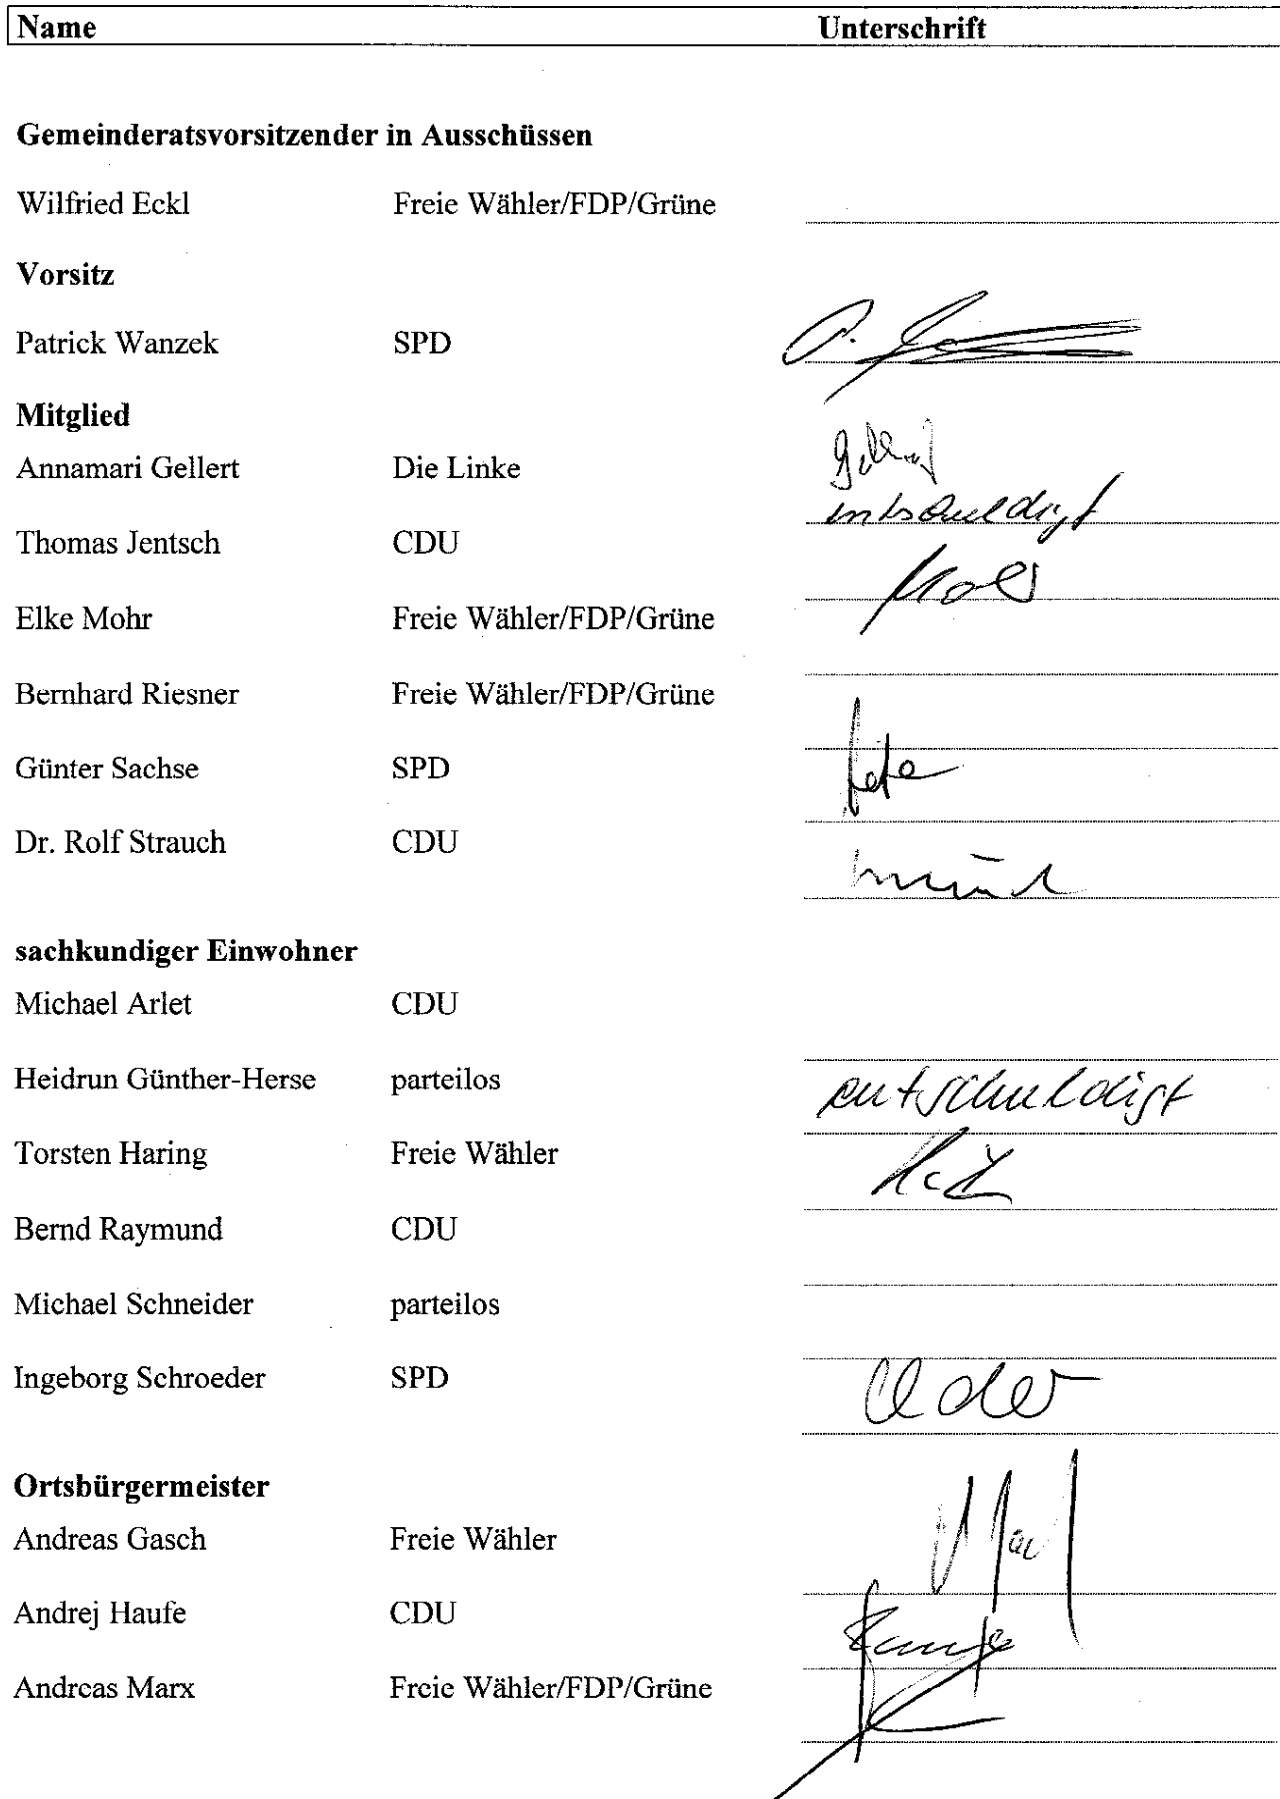 Name Unterschrift
Gemeinderatsvorsitzender in Ausschüssen
Wilfried Eckl Freie Wähler/FDP/Grüne
Vorsitz
Patrick Wanzek SPD
Mitglied
Annamari Gellert Die Linke
entschuldigt
Thomas Jentsch CDU
Elke Mohr Freie Wähler/FDP/Grüne
Bernhard Riesner Freie Wähler/FDP/Grüne
Günter Sachse SPD
Dr. Rolf Strauch CDU
sachkundiger Einwohner
Michael Arlet CDU
Heidrun Günther-Herse parteilos entschuldigt
Torsten Haring Freie Wähler
Bernd Raymund CDU
Michael Schneider parteilos
Ingeborg Schroeder SPD
Ortsbürgermeister
Andreas Gasch Freie Wähler
Andrej Haufe CDU
Andreas Marx Freie Wähler/FDP/Grüne